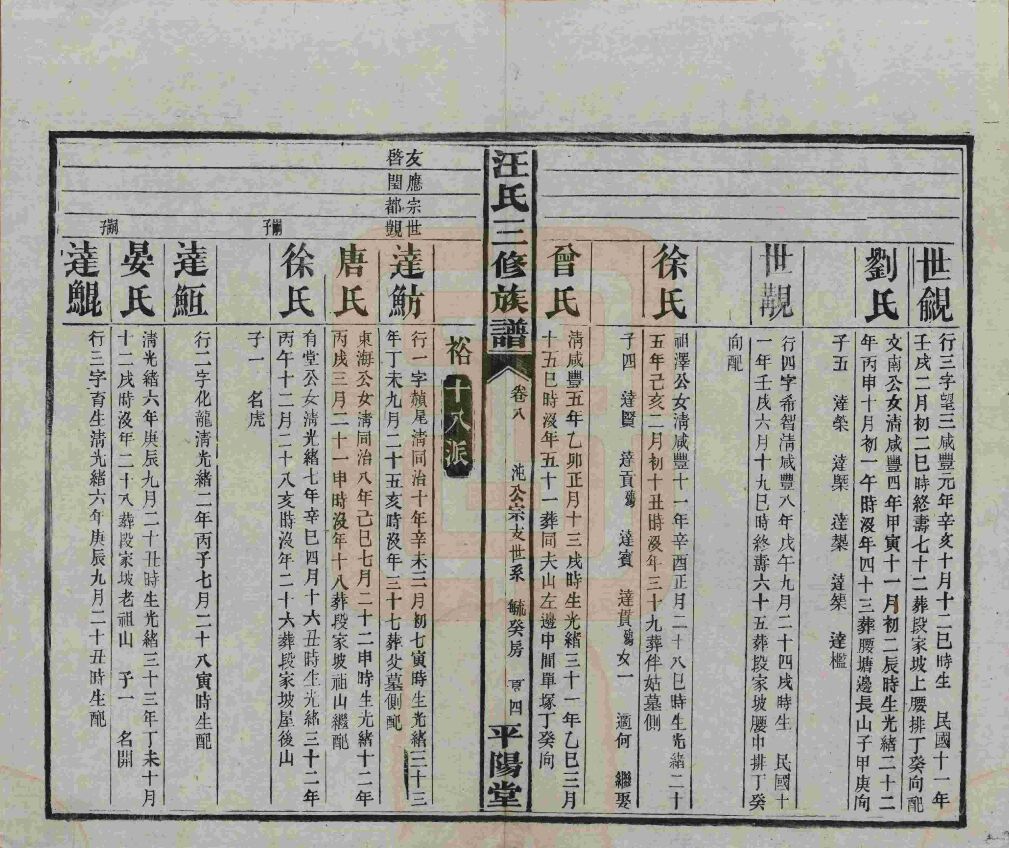 世覦
行三字望三咸豐元年辛亥十月十二巳時生 民國十一年
壬戌二月初二巳時終壽七十二葬段家坡上腰排丁癸向配
劉氏
文南公女清咸豐四年甲寅十一月初二辰時生光緒二十二
年丙申十月初一午時沒年四十三葬腰塘邊長山子甲庚向
子五 達榮 達槼 達槷 達榘 達檻
世覯
行四字希智清咸豐八年戊午九月二十四戌時生 民國十
一年壬戌六月十九巳時終壽六十五葬段家坡腰中排丁癸
向配
徐氏
祖澤公女清咸豐十一年辛酉正月二十八巳時生光緒二十
五年己亥二月初十丑時沒年三十九葬伴姑墓側
子四 達賢 達貢殤 達賓 達貫殤女一 適何 繼娶
曾氏
清咸豐五年乙卯正月十三戌時生光緒三十一年乙巳三月
十五巳時沒年五十一葬同夫山左邊中間單塚丁癸向
汪氏三修族譜
卷八 沌公宗支世系 毓癸房 頁四
平陽堂
裕 十八派
友應宗世
啓閏都覬
達魴
行一字赬尾清同治十年辛未三月初七寅時生光緒三十三
年丁未九月二十五亥時沒年三十七葬父墓側配
唐氏
東海公女清同治八年己巳七月二十二申時生光緒十二年
丙戌三月二十一申時沒年十八葬段家坡祖山繼配
徐氏
有堂公女清光緒七年辛巳四月十六丑時生光緒三十二年
丙午十二月二十八亥時沒年二十六葬段家坡屋後山
子一 名虎
嗣子
達䱭
行二字化龍清光緒二年丙子七月二十八寅時生配
晏氏
清光緒六年庚辰九月二十丑時生光緒三十三年丁未十月
十二戌時沒年二十八葬段家坡老祖山 子一 名開
嗣子
達鯤
行三字育生清光緒六年庚辰九月二十丑時生配